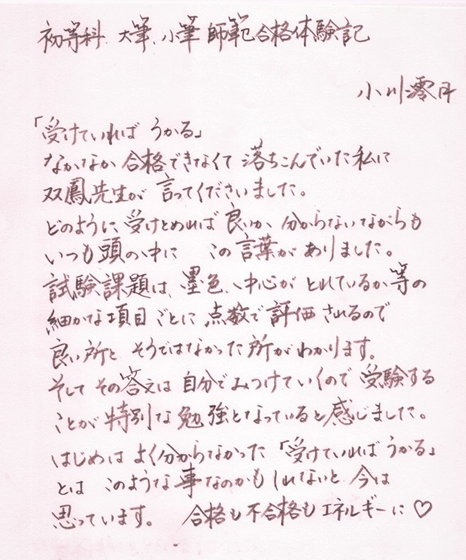 初等科 大筆、小筆 師範合格体験記
小川澪月
「受けていれば うかる」
なかなか 合格できなくて 落ちこんでいた私に
双鳳先生が 言ってくださいました。
どのように 受けとめれば 良いか、分からないながらも
いつも頭の中に この言葉がありました。
試験課題は、墨色、中心が とれているか等の
細かな項目ごとに 点数で評価されるので
良い所と そうではなかった所が わかります。
そして その答えは 自分でみつけていくので 受験する
ことが 特別な 勉強となっていると 感じました。
はじめは よく分からなかった「受けていれば うかる」
とは このような事なのかもしれないと 今は
思っています。 合格も不合格も エネルギーに♡